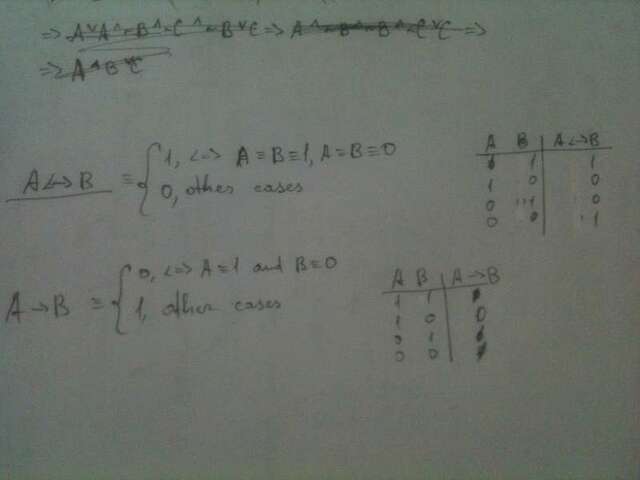 => A∨A^~B^~C^~B∨C => A^~B^~B^~C∨C =>
=> A^B∨C
A<->B ≡ { 1, <=> A≡B≡1, A≡B≡0
0, other cases
A B | A<->B
1 1 | 1
1 0 | 0
0 1 | 0
0 0 | 1
A→B ≡ { 0, <=> A≡1 and B≡0
1, other cases
A B | A→B
1 1 |
1 0 | 0
0 1 |
0 0 |